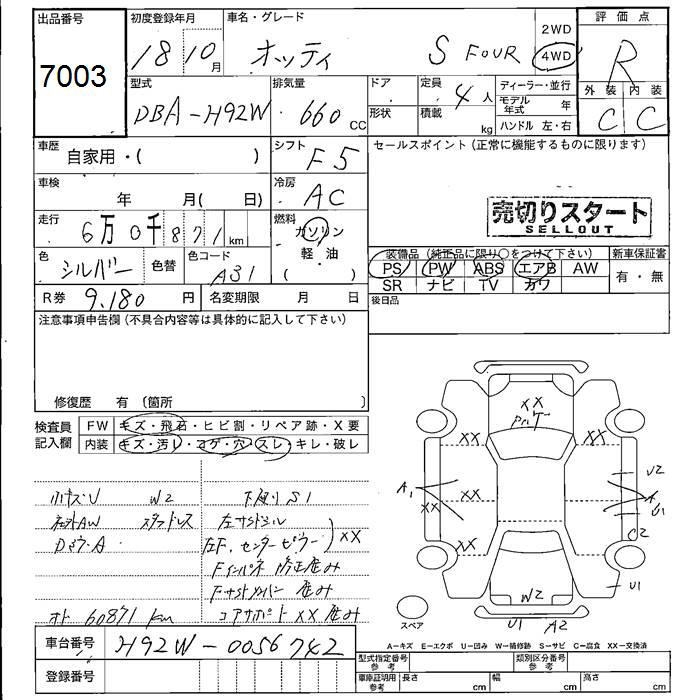 出品番号 初度登録年月 車名・グレード 2WD 評価点
7003 18 10月 オッティ S FOUR 4WD R
型式 排気量 ドア 定員 ディーラー・並行 外装 内装
DBA-H92W 660 CC 形状 4人 積載 kg モデル年式 年 ハンドル 左・右 C C
車歴 自家用・( ) シフト F5 セールスポイント(正常に機能するものに限ります)
車検 年 月( 日) 冷房 AC
売切りスタート
SELLOUT
走行 6万0千871km 燃料 ガソリン 軽・油 ( )
色 シルバー 色替 色コード A31
装備品(純正品に限り○をつけて下さい) 新車保証書
PS PW ABS エアB AW 有・無
SR ナビ TV カワ
R券 9,180円 名変期限 月 日 後日品
注意事項申告欄(不具合内容等は具体的に記入して下さい)
修復歴 有(箇所 )
検査員記入欄 FW キズ・飛石・ヒビ割・リペア跡・X要
内装 キズ・汚れ・コゲ・穴・スレ・キレ・破レ
小キズU W2 下廻りS1
社外AW スタッドレス 左サイドシル
左F.センターピラー XX
Fインパネ 修正歴み
オド 60871 km コアサポート XX 歴み
XX
XX XX
A1 XX XX U2
A U1
XX C2
W2 U1
スペア U1 A2
A-キズ E-エクボ U-凹み W-補修跡 S-サビ C-腐食 XX-交換済
車台番号 H92W-0056742
型式指定番号 参考 類別区分番号 参考
登録番号 車庫証明用 参考 長さ cm 幅 cm 高さ cm